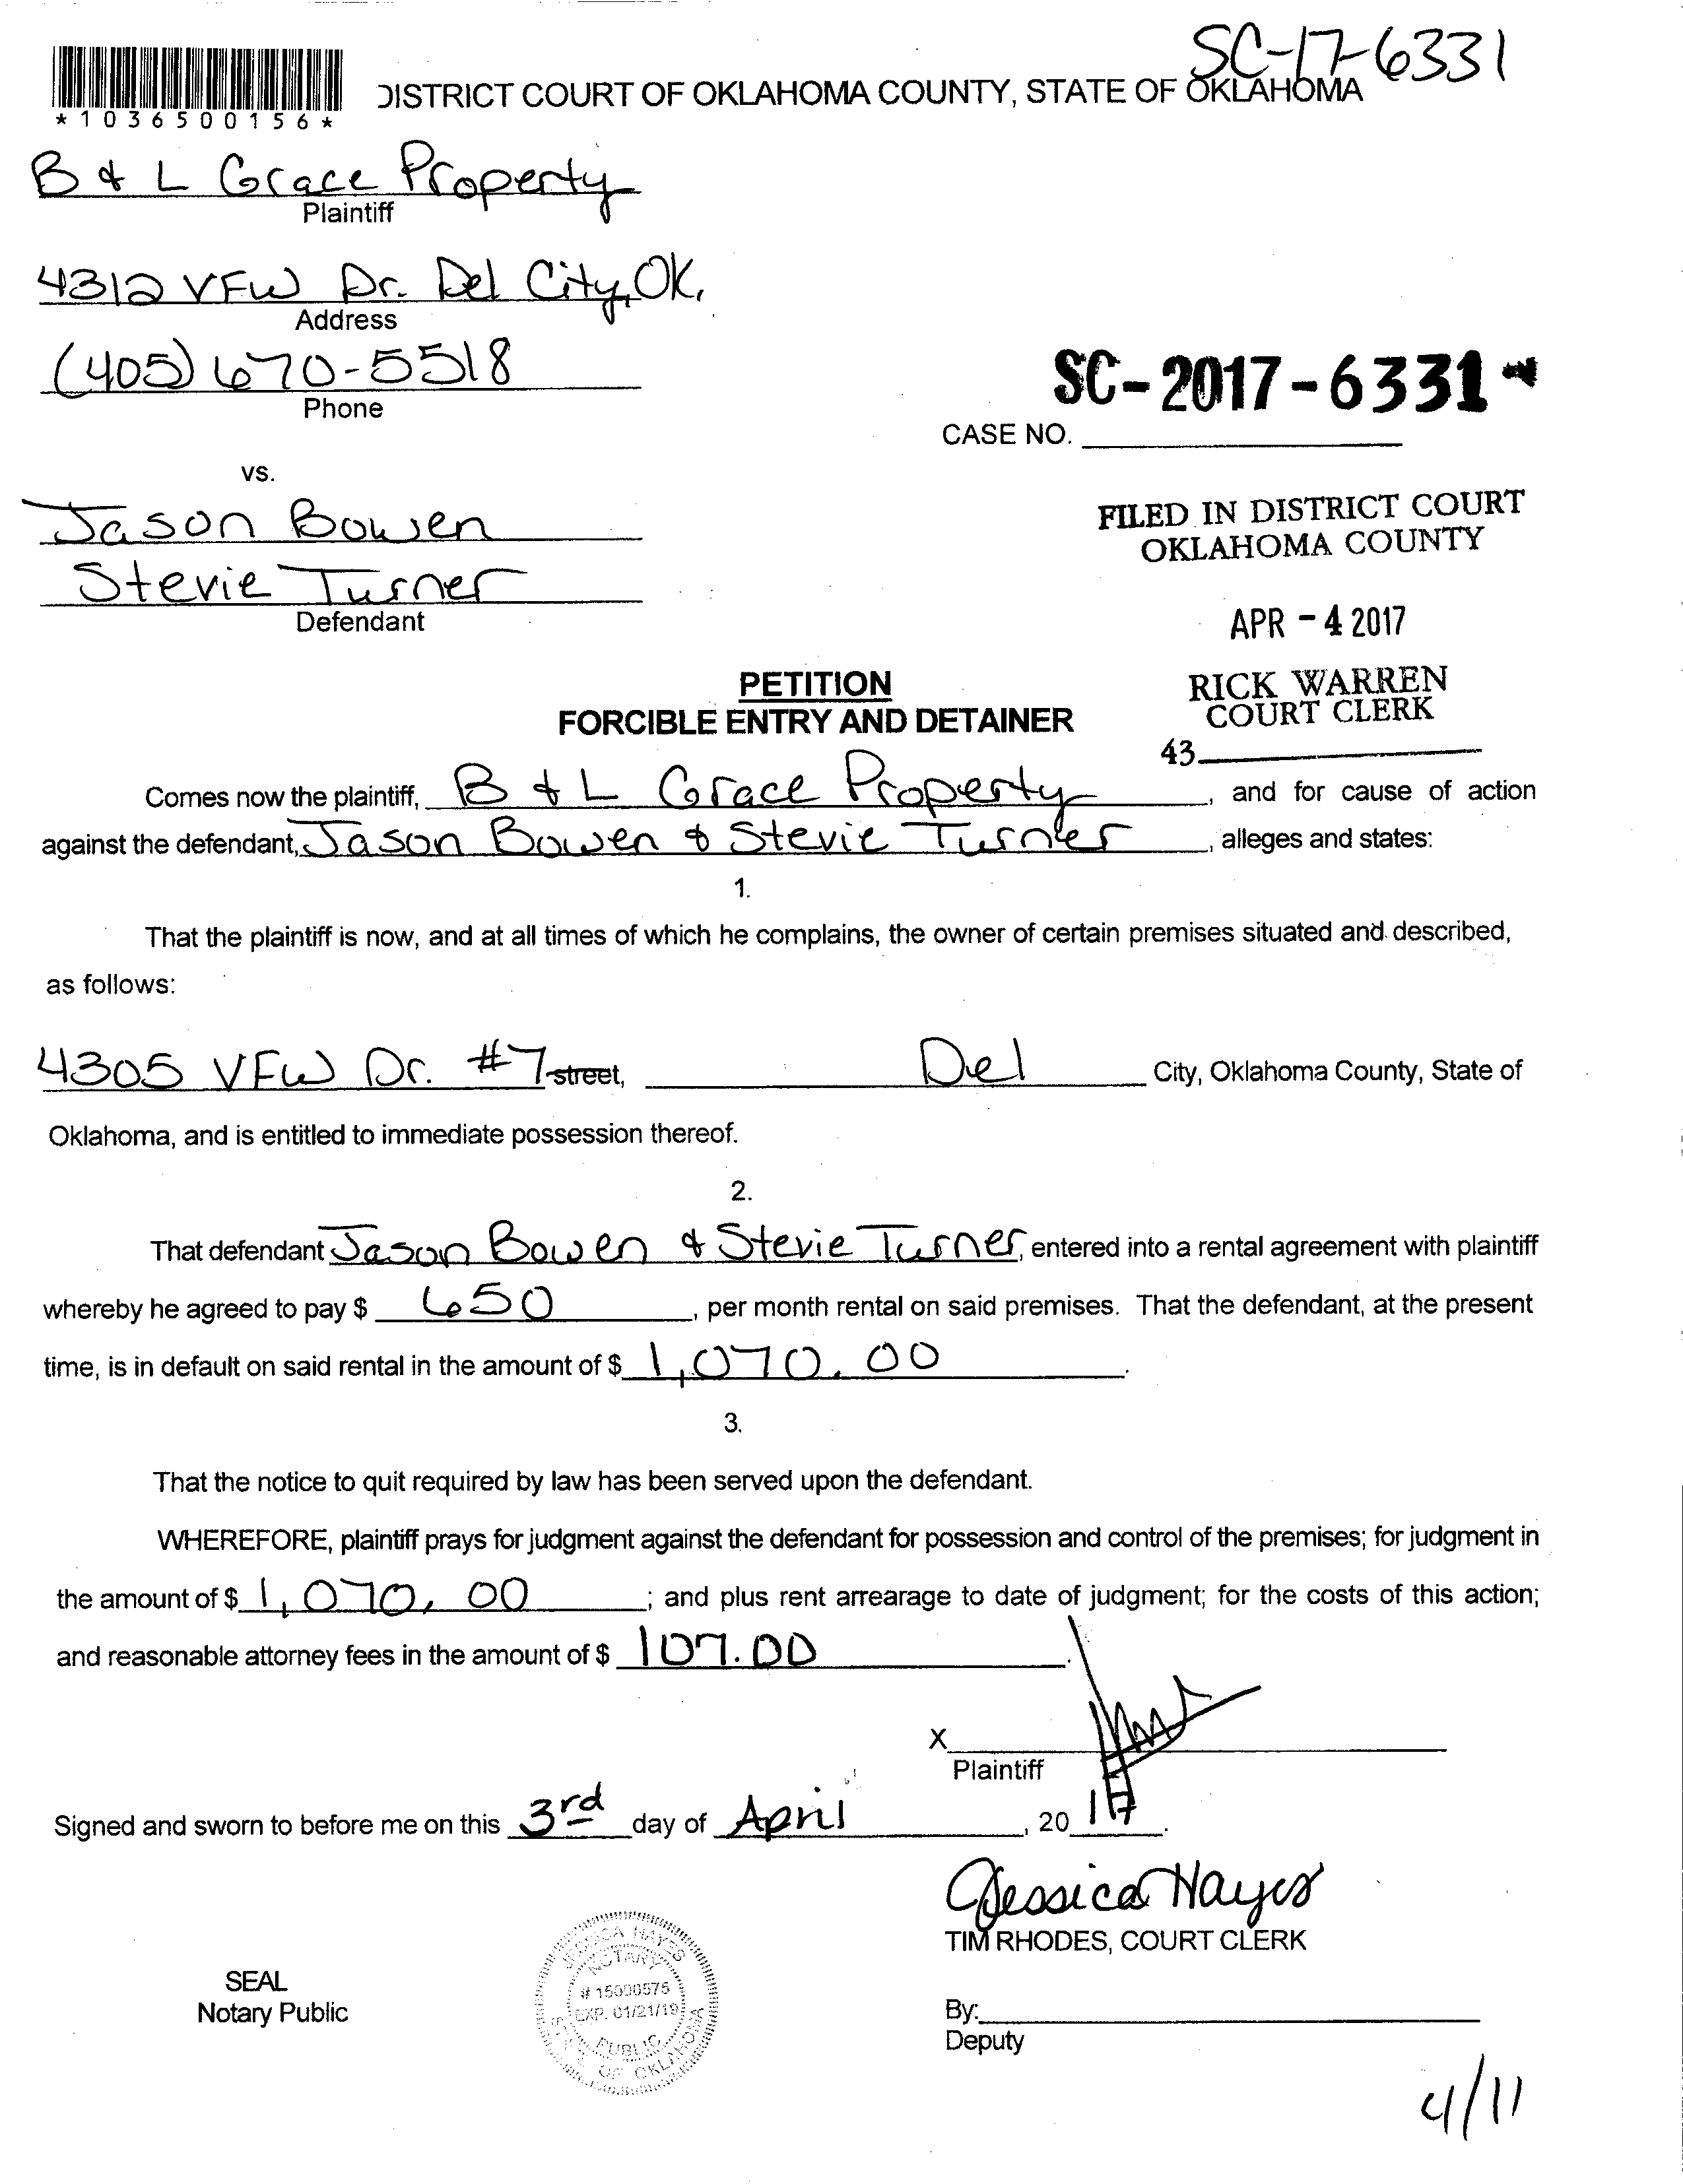 SC-17-6331
*1036500156*
DISTRICT COURT OF OKLAHOMA COUNTY, STATE OF OKLAHOMA
B & L Grace Property
Plaintiff
4312 VFW Dr. Del City, OK.
Address
(405) 670-5518
Phone
SC-2017-6331
CASE NO.
vs.
Jason Bowen
Stevie Turner
Defendant
FILED IN DISTRICT COURT
OKLAHOMA COUNTY
APR - 4 2017
RICK WARREN
COURT CLERK
43
PETITION
FORCIBLE ENTRY AND DETAINER
Comes now the plaintiff, B & L Grace Property, and for cause of action
against the defendant, Jason Bowen & Stevie Turner, alleges and states:
1.
That the plaintiff is now, and at all times of which he complains, the owner of certain premises situated and described,
as follows:
4305 VFW Dr. #7 street, Del City, Oklahoma County, State of
Oklahoma, and is entitled to immediate possession thereof.
2.
That defendant Jason Bowen & Stevie Turner, entered into a rental agreement with plaintiff
whereby he agreed to pay $ 650, per month rental on said premises. That the defendant, at the present
time, is in default on said rental in the amount of $ 1,070.00.
3.
That the notice to quit required by law has been served upon the defendant.
WHEREFORE, plaintiff prays for judgment against the defendant for possession and control of the premises; for judgment in
the amount of $ 1,070.00; and plus rent arrearage to date of judgment; for the costs of this action;
and reasonable attorney fees in the amount of $ 107.00.
X
Plaintiff
Signed and sworn to before me on this 3rd day of April, 2017.
Jessica Hayes
TIM RHODES, COURT CLERK
SEAL
Notary Public
JESSICA HAYES
NOTARY
# 15000575
EXP. 01/21/19
PUBLIC
STATE OF OKLAHOMA
By:
Deputy
4/11